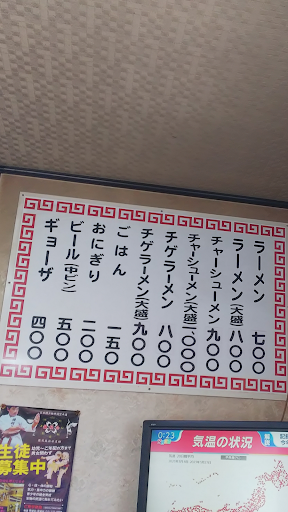 ラーメン 七〇〇
ラーメン(大盛) 八〇〇
チャーシューメン 九〇〇
チャーシューメン(大盛) 一、〇〇〇
チゲラーメン 八〇〇
チゲラーメン(大盛) 九〇〇
ごはん 一五〇
おにぎり 二〇〇
ビール(中ビン) 五〇〇
ギョーザ 四〇〇
生徒
募集中
気温の状況